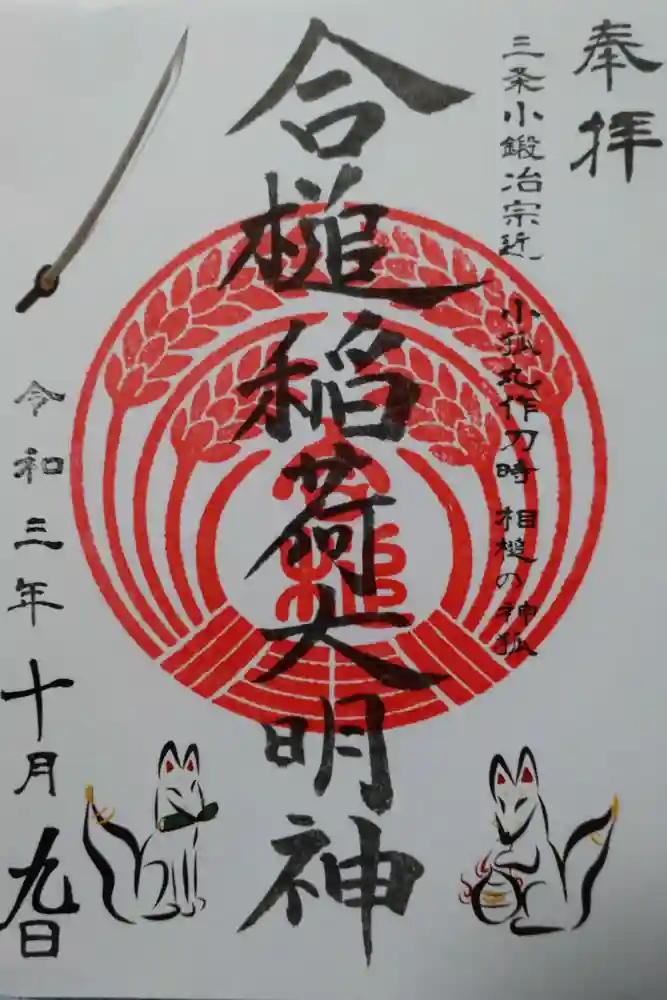 奉拝
三条小鍛冶宗近 小狐丸作刀時 相槌の神狐
合槌稲荷大明神
合槌
令和三年十月九日